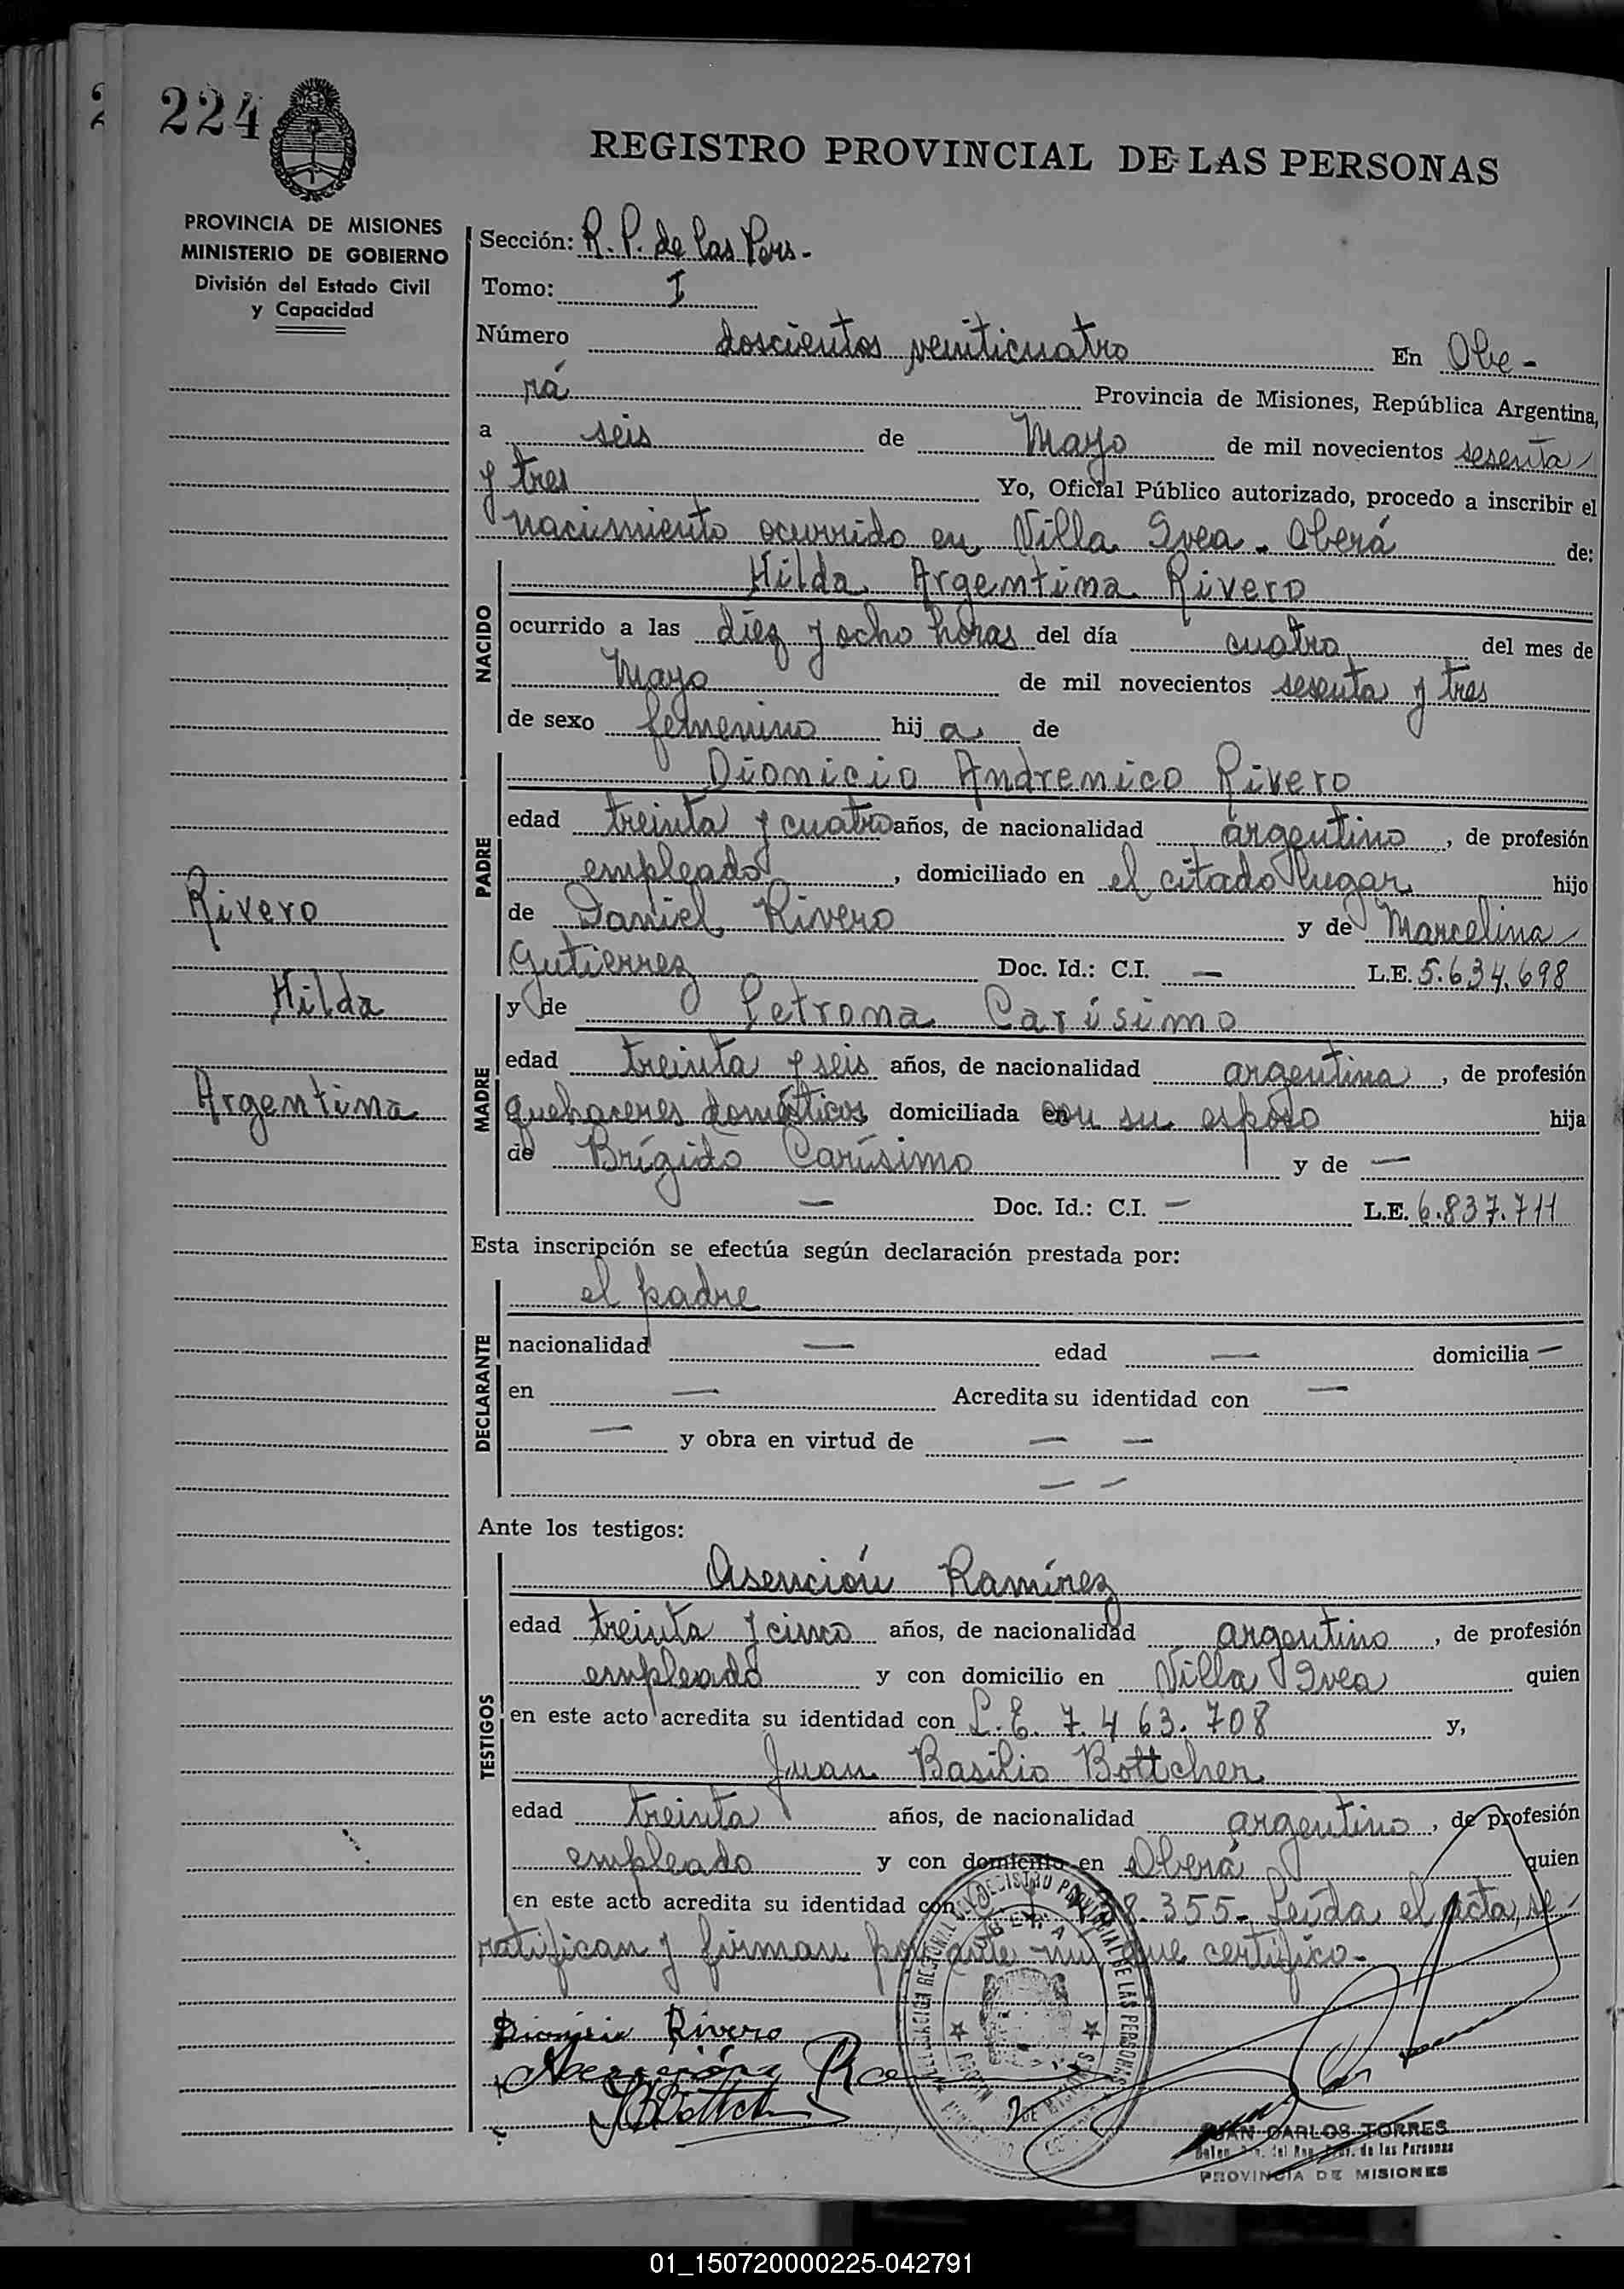 224
REGISTRO PROVINCIAL DE LAS PERSONAS
PROVINCIA DE MISIONES
MINISTERIO DE GOBIERNO
División del Estado Civil
y Capacidad
Sección: R. P. de las Pers.-
Tomo: I
Número doscientos veinticuatro En Obe-
rá Provincia de Misiones, República Argentina,
a seis de Mayo de mil novecientos sesenta
y tres Yo, Oficial Público autorizado, procedo a inscribir el
nacimiento ocurrido en Villa Svea - Oberá de:
NACIDO
Hilda Argentina Rivero
ocurrido a las diez y ocho horas del día cuatro del mes de
Mayo de mil novecientos sesenta y tres
de sexo femenino hij a de
PADRE
Dionicio Andremico Rivero
edad treinta y cuatro años, de nacionalidad argentino, de profesión
empleado, domiciliado en el citado lugar hijo
de Daniel Rivero y de Marcelina
Gutierrez Doc. Id.: C.I. — L.E. 5.634.698
MADRE
y de Petrona Carísimo
edad treinta y seis años, de nacionalidad argentina, de profesión
quehaceres domésticos domiciliada en con su esposo hija
de Brígido Carísimo y de —
— Doc. Id.: C.I. — L.E. 6.837.711
Rivero
Hilda
Argentina
Esta inscripción se efectúa según declaración prestada por:
DECLARANTE
el padre
nacionalidad — edad — domicilia —
en — Acredita su identidad con —
— y obra en virtud de — —
— —
Ante los testigos:
TESTIGOS
Asención Ramírez
edad treinta y cinco años, de nacionalidad argentino, de profesión
empleado y con domicilio en Villa Svea quien
en este acto acredita su identidad con L.E. 7.463.708 y,
Juan Basilio Bottcher
edad treinta años, de nacionalidad argentino, de profesión
empleado y con domicilio en Oberá quien
en este acto acredita su identidad con 8.355.- Leída el acta, se
ratifican y firman por ante mí que certifico.-
Rivero
JUAN CARLOS TORRES
de las Personas
PROVINCIA DE MISIONES
01_150720000225-042791